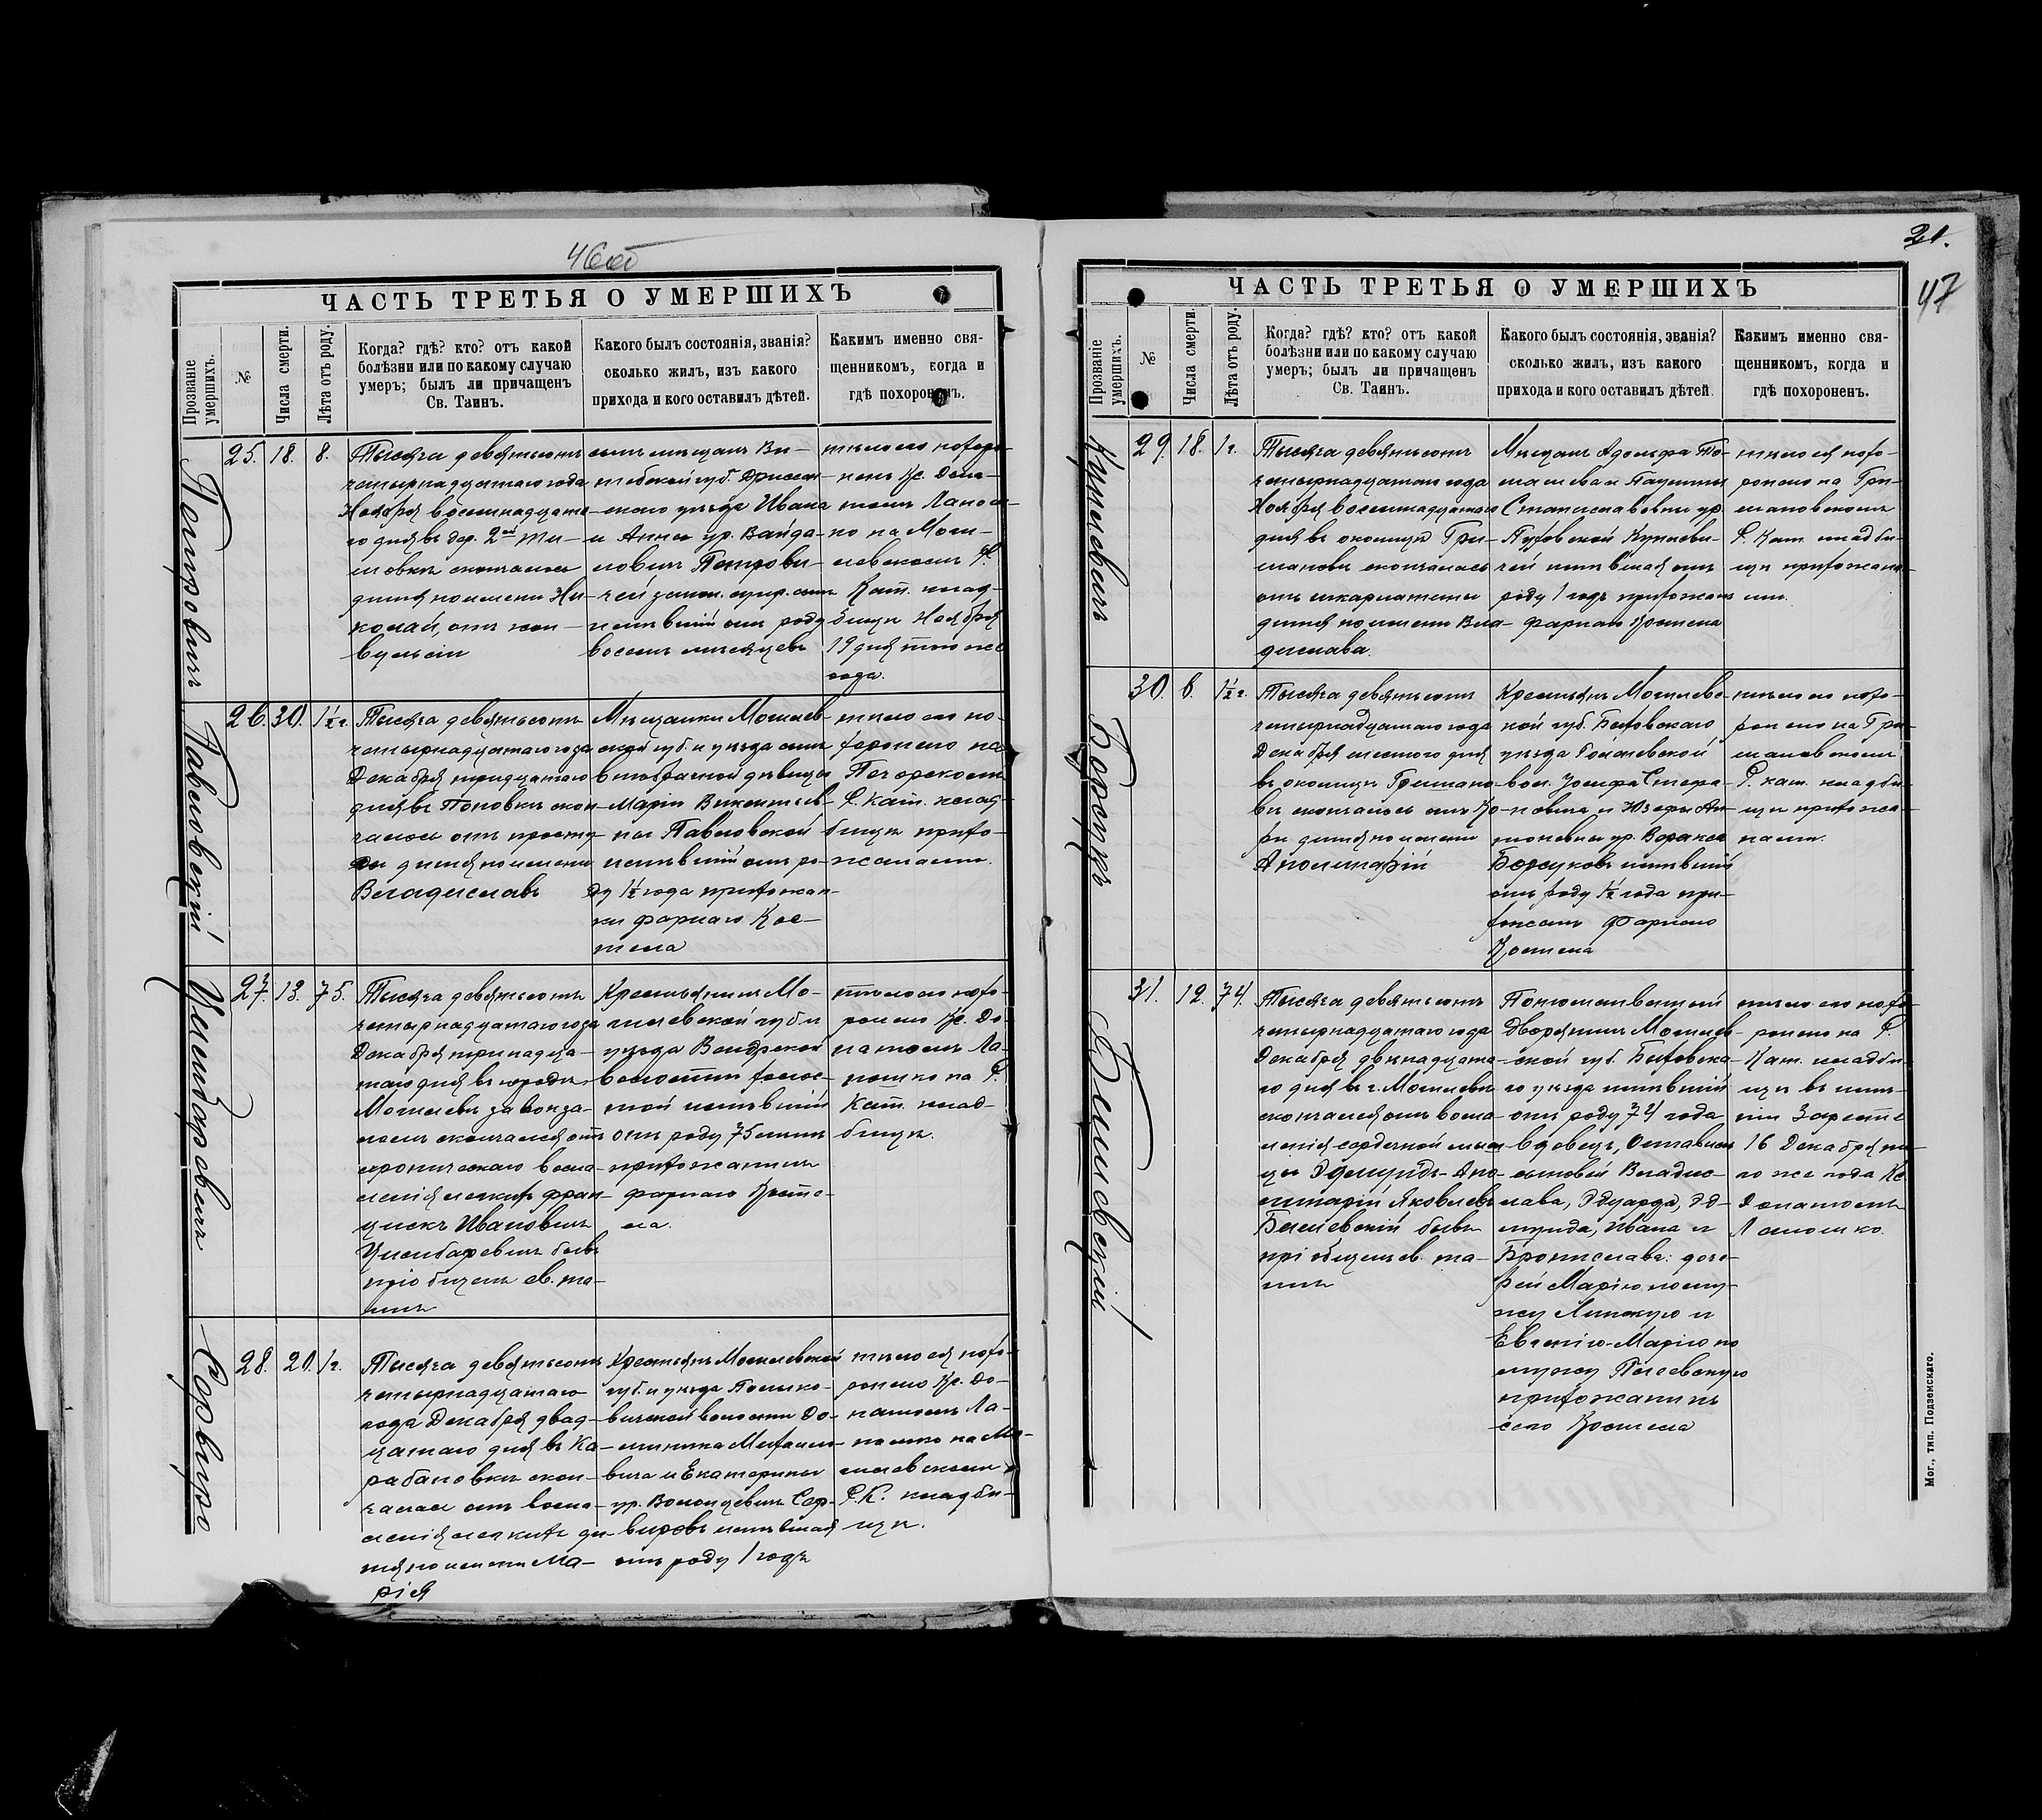 46об
ЧАСТЬ ТРЕТЬЯ О УМЕРШИХЪ
Прозваніе умершихъ.
№
Числа смерти.
Лѣта отъ роду.
Когда? гдѣ? кто? отъ какой
болѣзни или по какому случаю
умеръ; былъ ли причащенъ
Св. Таинъ.
Какого былъ состоянія, званія?
сколько жилъ, изъ какого
прихода и кого оставилъ дѣтей.
Какимъ именно свя-
щенникомъ, когда и
гдѣ похороненъ.
Петровичъ
25. 18. 8.
Тысяча девятьсотъ
четырнадцатаго года
Ноября восемнадцата-
го дня въ дер. 2ой Ти-
шовкѣ скончалось
дитя по имени Ни-
колай, отъ кон-
вульсіи
сынъ мѣщанъ Ви-
тебской губ. Дриссен-
скаго уѣзда Ивана
и Анны ур. Вайда-
ловичъ Петрови-
чей закон. супр. сынъ
имѣвшій отъ роду
восемь мѣсяцевъ
тѣло его похоро-
нено Кс. Дона-
томъ Лапош-
ко на Моги-
левскомъ Р.
Кат. клад-
бищѣ Ноября
19 дня того же
года.
Павловскій
26. 30. 1½ г.
Тысяча девятьсотъ
четырнадцатаго года
Декабря тридцатаго
дня въ Поповкѣ скон-
чалось отъ просту-
ды дитя по имени
Владиславъ
Мѣщанки Могилев-
ской губ. и уѣзда сынъ
внѣбрачной дѣвицы
Маріи Викентьев-
ны Павловской
имѣвшій отъ ро-
ду 1½ года прихожан-
ки фарнаго Кос-
тела
тѣло его по-
хоронено на
Печорскомъ
Р. Кат. клад-
бищѣ прихо-
жанами.
27. 13. 75.
Тысяча девятьсотъ
четырнадцатаго года
Декабря тринадца-
таго дня въ городѣ
Могилевѣ за вокза-
ломъ скончался отъ
хроническаго воспа-
ленія легкихъ Фран-
цискъ Ивановичъ
бывъ
пріобщенъ св. та-
инъ
Крестьянинъ Мо-
гилевской губ. и
уѣзда Вендрской
волости холос-
той имѣвшій
отъ роду 75 лѣтъ
прихожанинъ
фарнаго Косте-
ла.
тѣло его похо-
ронено Кс. До-
натомъ Ла-
пошко на Р.
Кат. клад-
бищѣ.
Сорвиро
28. 20. 1 г.
Тысяча девятьсотъ
четырнадцатаго
года Декабря двад-
цатаго дня въ Ка-
рабановкѣ скон-
чалась отъ воспа-
ленія легкихъ ди-
тя по имени Ма-
рія
Крестьянъ Могилевской
губ. и уѣзда Полыко-
вичской волости До-
миника Михайло-
вича и Екатерины
ур. Волонцевичъ Сор-
вировъ имѣвшая
отъ роду 1 годъ
тѣло ея похо-
ронено Кс. До-
натомъ Ла-
пошко на Мо-
гилевскомъ
Р. К. кладби-
щѣ.
21.
47
ЧАСТЬ ТРЕТЬЯ О УМЕРШИХЪ
Прозваніе умершихъ.
№
Числа смерти.
Лѣта отъ роду.
Когда? гдѣ? кто? отъ какой
болѣзни или по какому случаю
умеръ; былъ ли причащенъ
Св. Таинъ.
Какого былъ состоянія, званія?
сколько жилъ, изъ какого
прихода и кого оставилъ дѣтей.
Какимъ именно свя-
щенникомъ, когда и
гдѣ похороненъ.
Куневичъ
29. 18. 1 г.
Тысяча девятьсотъ
четырнадцатаго года
Ноября восемнадцатаго
дня въ околицѣ Гри-
мановѣ скончалась
отъ шкарлатины
дитя по имени Вла-
дислава.
Мѣщанъ Адольфа То-
машева и Паулины
Станиславовны ур.
Пуховской Куневи-
чей имѣвшая отъ
роду 1 годъ прихожанъ
фарнаго Костела
тѣло ея похо-
ронено на Гри-
мановскомъ
Р. Кат. кладби-
щѣ прихожана-
ми.
Борсукъ
30. 6. 1½ г.
Тысяча девятьсотъ
четырнадцатаго года
Декабря шестого дня
въ околицѣ Гримано-
вѣ скончалось отъ Ко-
ри дитя по имени
Аполинарій
Крестьянъ Могилевс-
кой губ. Быховскаго
уѣзда
вол. Іосифа Стефа-
новича и Юзефы Ан-
тоновны ур. Воракса
Борсуковъ имѣвшій
отъ роду 1½ года при-
хожанъ Фарнаго
Костела
тѣло его похо-
ронено на Гри-
мановскомъ
Р. кат. кладби-
щѣ прихожа-
нами.
Бѣлевскій
31. 12. 74.
Тысяча девятьсотъ
четырнадцатаго года
Декабря двѣнадцата-
го дня въ г. Могилевѣ
скончался отъ воспа-
ленія сердечной мыш-
цы Эдмундъ-Апо-
линарій Яковлевъ
Бѣлевскій бывъ
пріобщенъ св. та-
инъ
Потомственный
Дворянинъ Могилев-
ской губ. Быховска-
го уѣзда имѣвшій
отъ роду 74 года
вдовецъ, Оставилъ
сыновей Владис-
лава, Эдуарда, Эд-
мунда, Ивана и
Бронислава: доче-
рей Марію по му-
жу и
Евгенію-Марію по
мужу
прихожанинъ
сего Костела
тѣло его похо-
ронено на Р.
Кат. кладби-
щѣ въ имѣ-
ніи
16 Декабря то-
го же года Кс.
Донатомъ
Лапошко.
Мог., тип. Подземскаго.